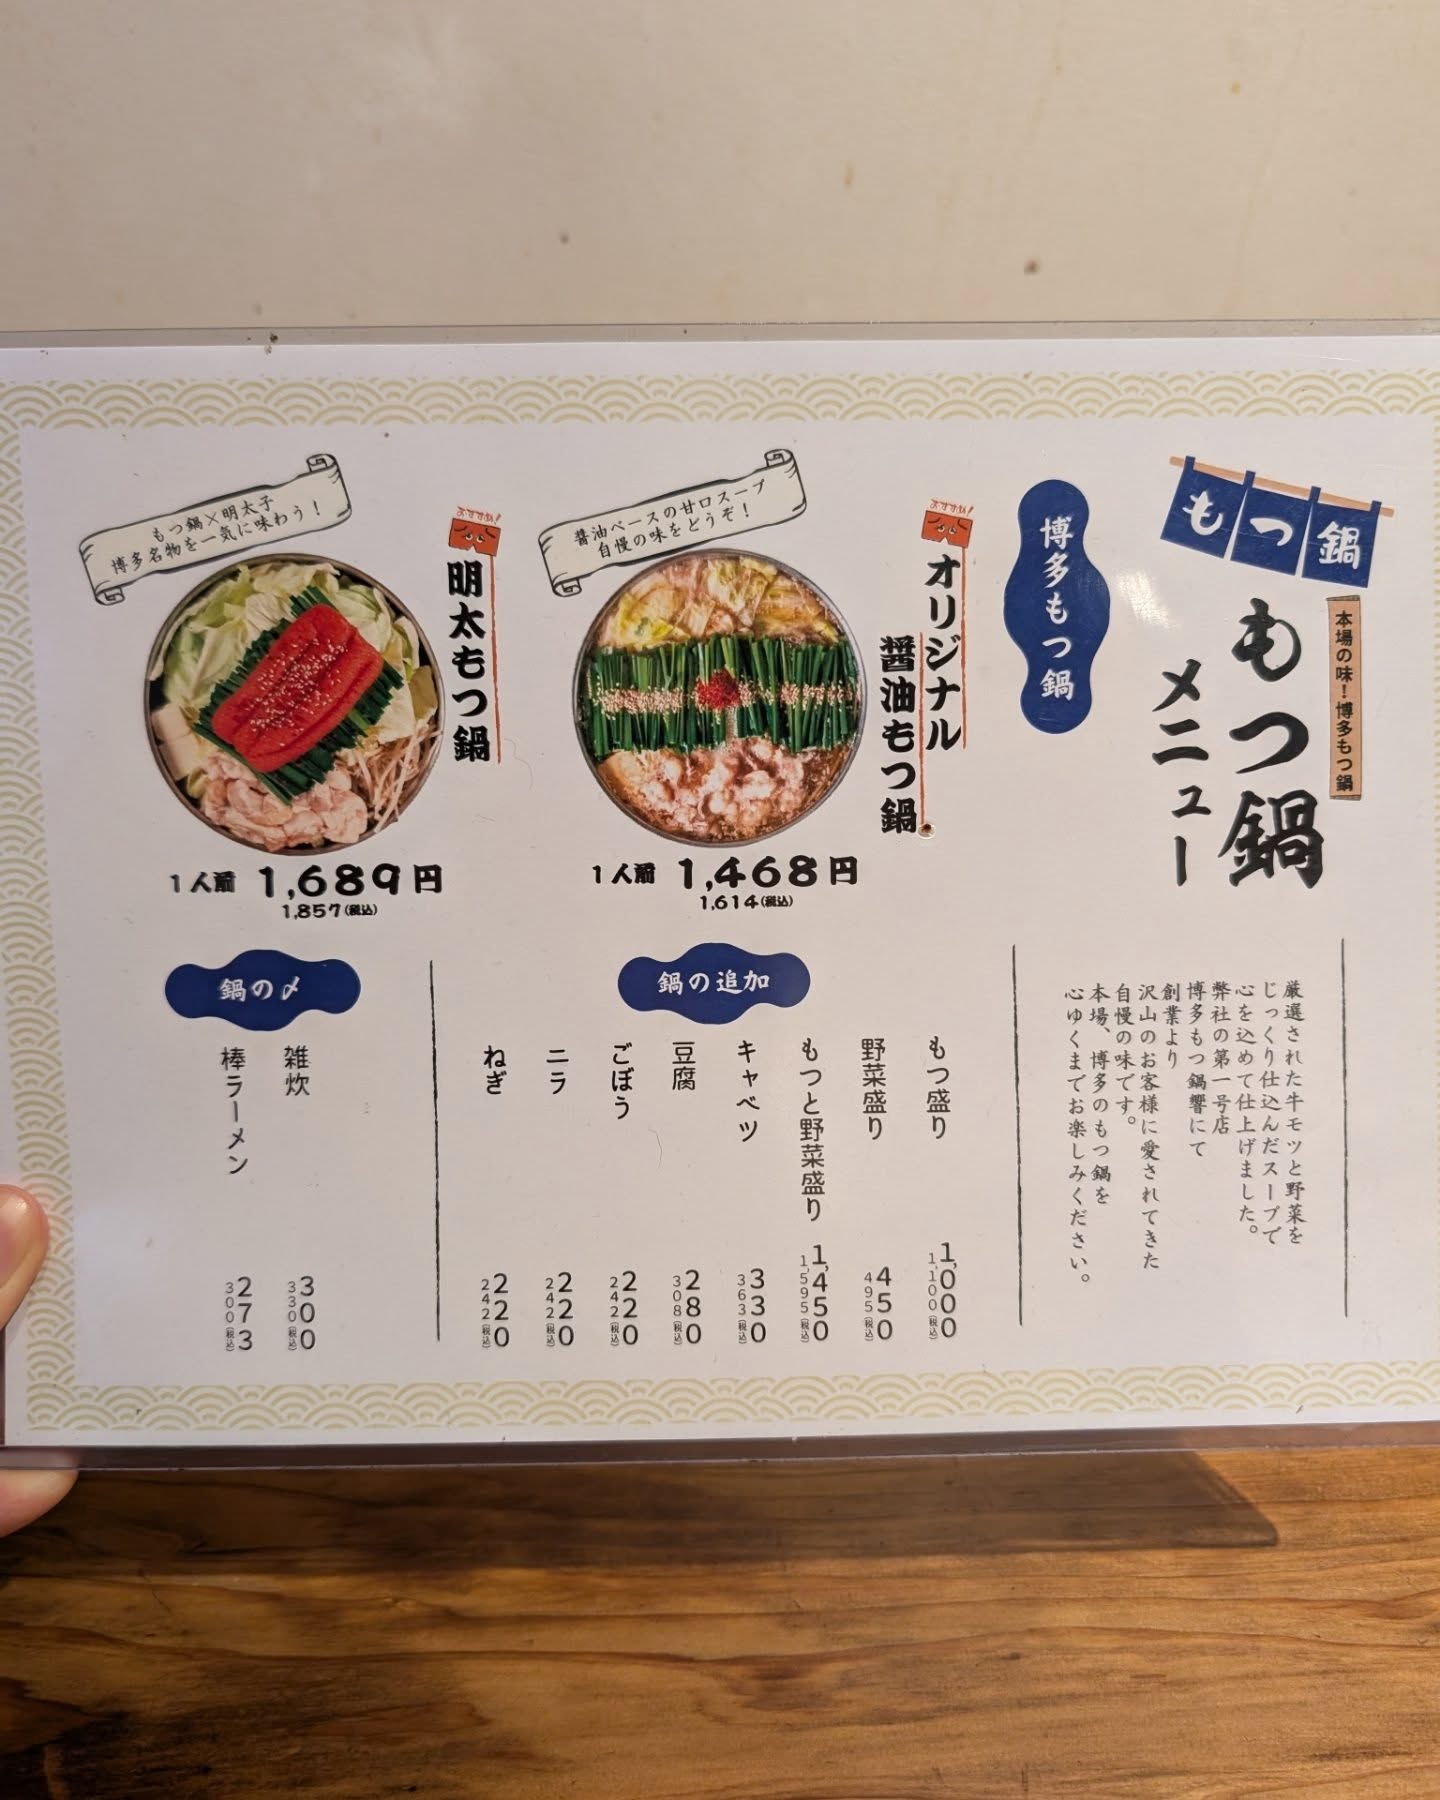 もつ鍋
本場の味！博多もつ鍋
もつ鍋
メニュー
厳選された牛モツと野菜を
じっくり仕込んだスープで
心を込めて仕上げました。
弊社の第一号店
博多もつ鍋響にて
創業より
沢山のお客様に愛されてきた
自慢の味です。
本場、博多のもつ鍋を
心ゆくまでお楽しみください。
博多もつ鍋
おすすめ！
オリジナル
醤油もつ鍋
醤油ベースの甘口スープ
自慢の味をどうぞ！
1人前 1,468円
1,614(税込)
おすすめ！
明太もつ鍋
もつ鍋×明太子
博多名物を一気に味わう！
1人前 1,689円
1,857(税込)
鍋の追加
もつ盛り 1,000
1,100(税込)
野菜盛り 450
495(税込)
もつと野菜盛り 1,450
1,595(税込)
キャベツ 330
363(税込)
豆腐 280
308(税込)
ごぼう 220
242(税込)
ニラ 220
242(税込)
ねぎ 220
242(税込)
鍋の〆
雑炊 300
330(税込)
棒ラーメン 273
300(税込)